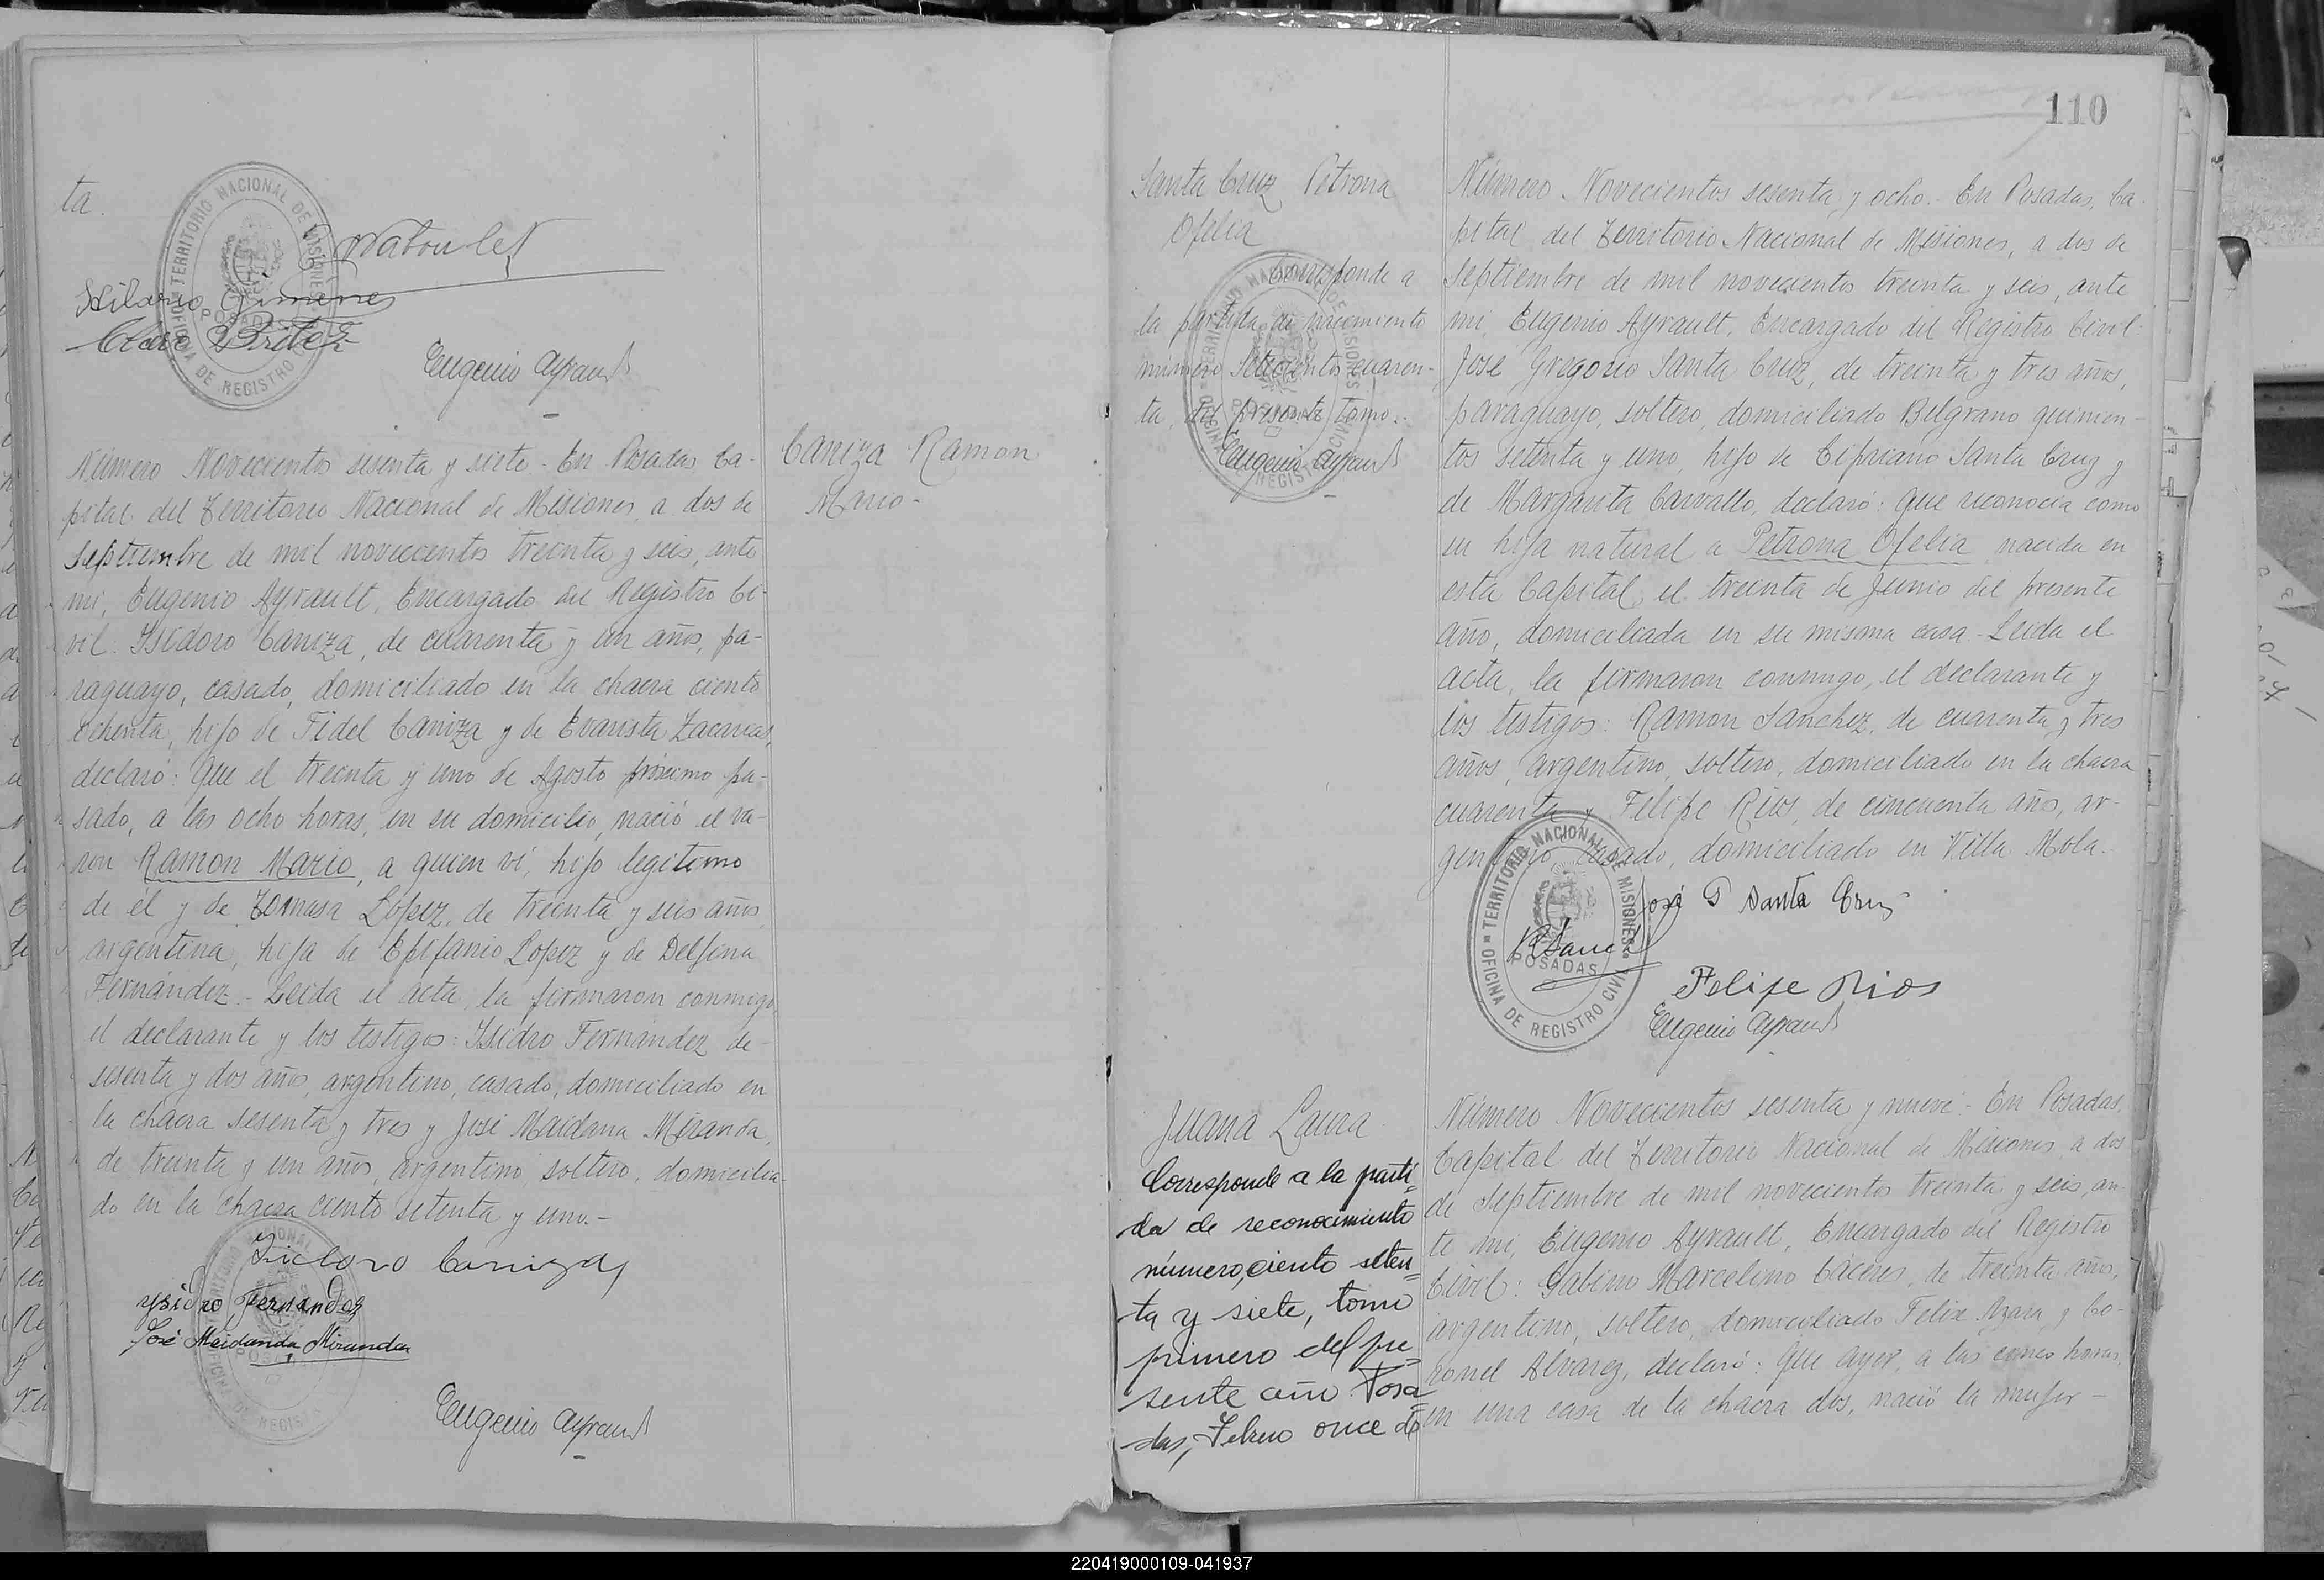 ta.
Hilario Gimenes
Eugenio Ayrault
Número Novecientos sesenta y siete.- En Posadas, Ca-
pital del Territorio Nacional de Misiones, a dos de
Septiembre de mil novecientos treinta y seis, ante
mi, Eugenio Ayrault, Encargado del Registro Ci-
vil: Isidoro Caniza, de cuarenta y un años, pa-
raguayo, casado, domiciliado en la chacra ciento
ochenta, hijo de Fidel Caniza y de Evarista Zacarias,
declaró: Que el treinta y uno de Agosto próximo pa-
sado, a las ocho horas, en su domicilio, nació el va-
ron Ramon Mario, a quien vi, hijo legitimo
de él y de Tomasa López, de treinta y seis años,
argentina, hija de Epifanio López y de Delfina
Fernández.- Leida el acta, la firmaron conmigo,
el declarante y los testigos: Isidro Fernández, de
sesenta y dos años, argentino, casado, domiciliado en
la chacra sesenta y tres y José Maidana Miranda,
de treinta y un años, argentino, soltero, domicilia-
do en la chacra ciento setenta y uno.-
Isidoro Caniza
Ysidro Fernandez
José Maidanda Miranda
Eugenio Ayrault
OFICINA DE REGISTRO CIVIL TERRITORIO NACIONAL DE MISIONES
POSADAS
Caniza Ramon
Mario-
110
Santa Cruz Petrona
Ofelia
Corresponde a
la partida de nacimiento
número Setecientos cuaren-
ta, del presente tomo.-
Eugenio Ayrault
Número Novecientos sesenta y ocho.- En Posadas, Ca-
pital del Territorio Nacional de Misiones, a dos de
Septiembre de mil novecientos treinta y seis, ante
mi, Eugenio Ayrault, Encargado del Registro Civil:
José Gregorio Santa Cruz, de treinta y tres años,
paraguayo, soltero, domiciliado Belgrano quinien-
tos setenta y uno, hijo de Cipriano Santa Cruz y
de Margarita Carvallo, declaró: Que reconocia como
su hija natural a Petrona Ofelia nacida en
esta Capital, el treinta de Junio del presente
año, domiciliada en su misma casa.- Leida el
acta, la firmaron conmigo, el declarante y
los testigos: Ramon Sanchez, de cuarenta y tres
años, argentino, soltero, domiciliado en la chacra
cuarenta y Felipe Rios, de cincuenta año, ar-
gentino, casado, domiciliado en Villa Mola.-
José G Santa Cruz
OFICINA DE REGISTRO CIVIL TERRITORIO NACIONAL DE MISIONES
POSADAS
Felipe Rios
Eugenio Ayrault
Juana Laura
Corresponde a la parti-
da de reconocimiento
número, ciento seten-
ta y siete, tomo
primero del pre-
sente año. Posa-
das, Febrero once de
Número Novecientos sesenta y nueve.- En Posadas,
Capital del Territorio Nacional de Misiones, a dos
de Septiembre de mil novecientos treinta y seis, an-
te mi, Eugenio Ayrault, Encargado del Registro
Civil: Gabino Marcelino Cáceres, de treinta años,
argentino, soltero, domiciliado Felix Azara y Co-
ronel Alvarez, declaró: Que ayer, a las cinco horas,
en una casa de la chacra dos, nació la mujer-
220419000109-041937